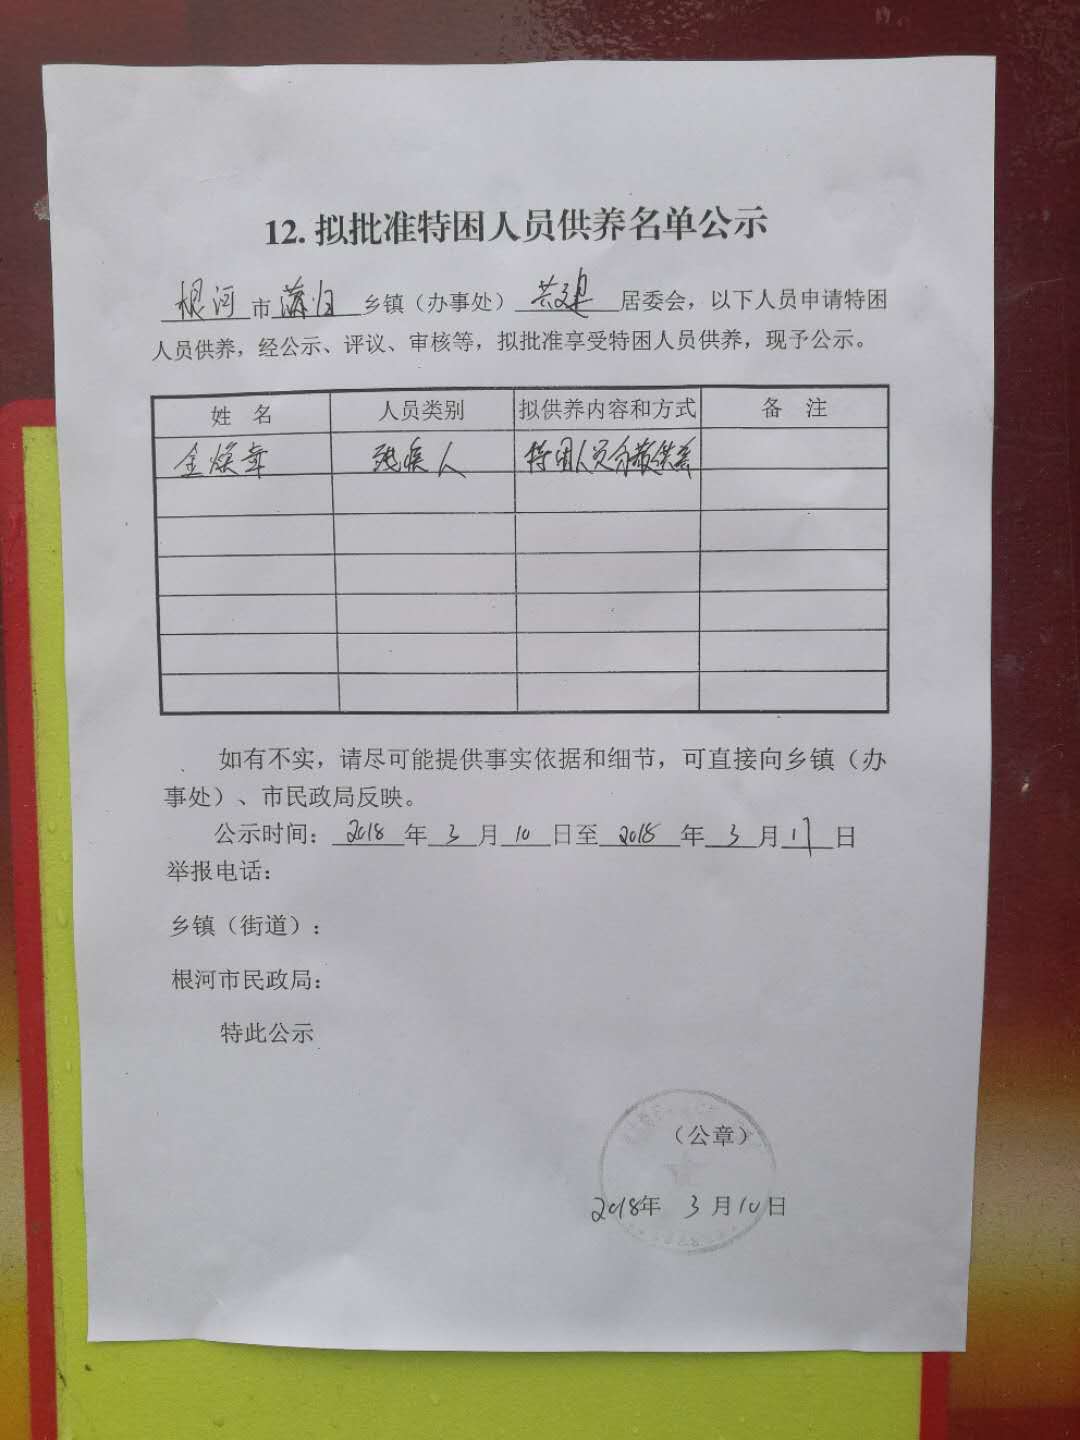 12. 拟批准特困人员供养名单公示
根河市满归乡镇（办事处）共建居委会，以下人员申请特困
人员供养，经公示、评议、审核等，拟批准享受特困人员供养，现予公示。
姓 名 人员类别 拟供养内容和方式 备 注
金焕章 残疾人 特困人员分散供养
如有不实，请尽可能提供事实依据和细节，可直接向乡镇（办
事处）、市民政局反映。
公示时间：2018年3月10日至2018年3月17日
举报电话：
乡镇（街道）：
根河市民政局：
特此公示
（公章）
2018年 3月10日